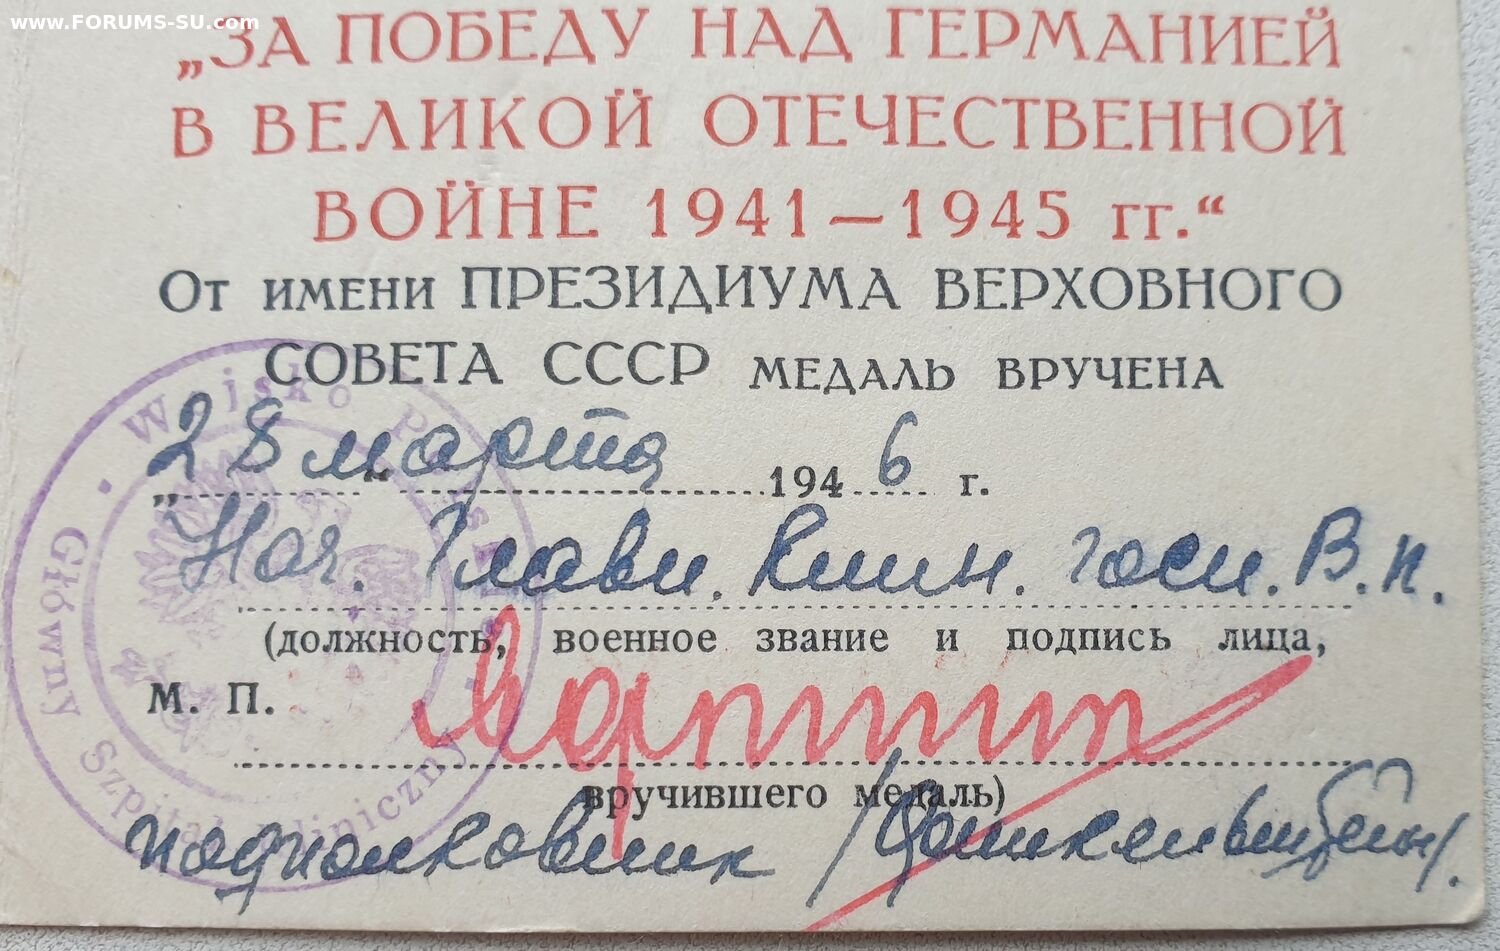 www.FORUMS-SU.com
„ЗА ПОБЕДУ НАД ГЕРМАНИЕЙ
В ВЕЛИКОЙ ОТЕЧЕСТВЕННОЙ
ВОЙНЕ 1941—1945 гг.“
От имени ПРЕЗИДИУМА ВЕРХОВНОГО
СОВЕТА СССР МЕДАЛЬ ВРУЧЕНА
„28“ марта 1946 г.
Нач. Главн. Клин. госп. В.П.
(должность, военное звание и подпись лица,
М. П.
вручившего медаль)
подполковник
Wojsko Polskie
Główny Szpital Kliniczny